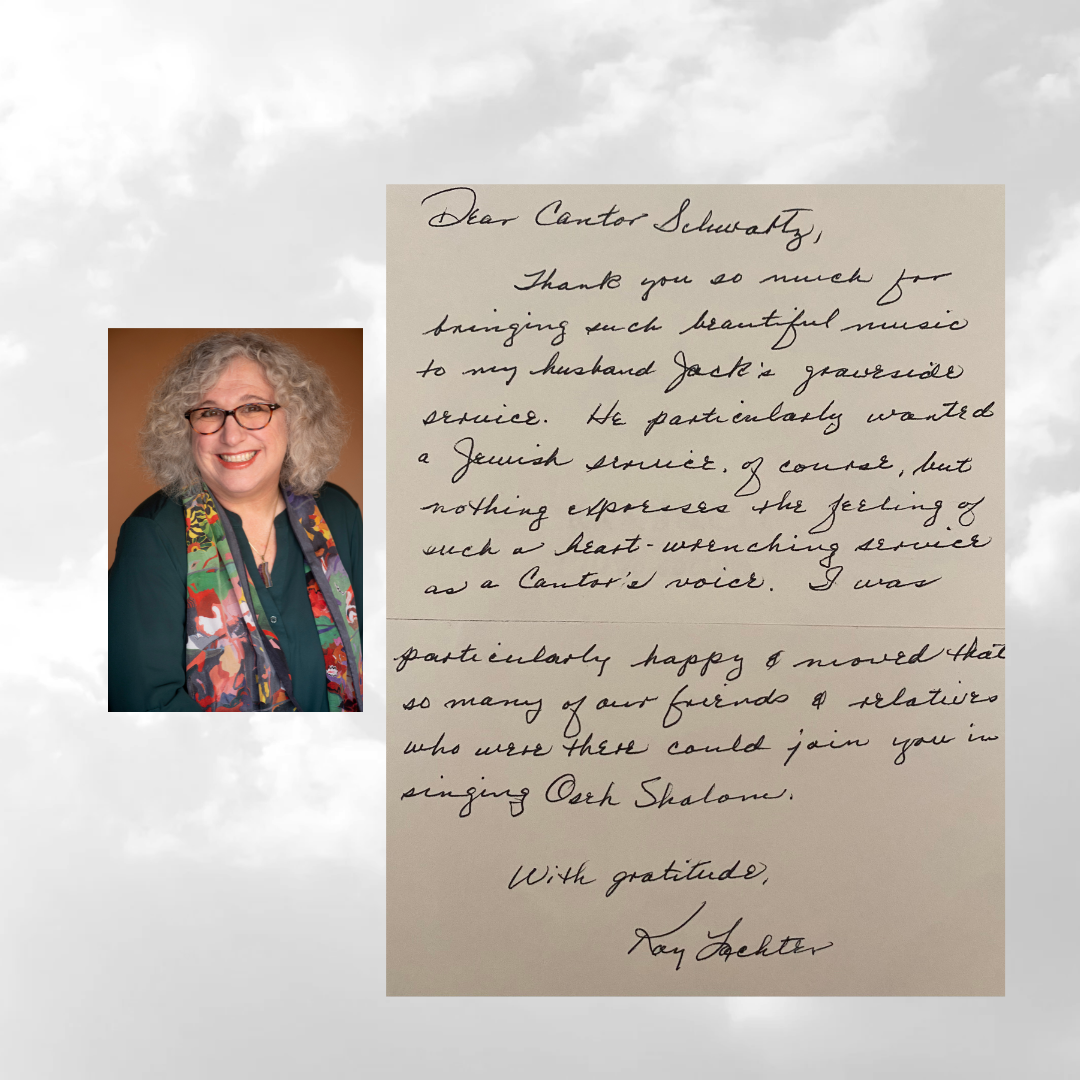 Dear Cantor Schwartz,
Thank you so much for
bringing such beautiful music
to my husband Jack's graveside
service. He particularly wanted
a Jewish service, of course, but
nothing expresses the feeling of
such a heart-wrenching service
as a Cantor's voice. I was
particularly happy & moved that
so many of our friends & relatives
who were there could join you in
singing Oseh Shalom.
With gratitude,
Kay Lachter